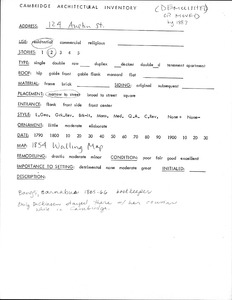 CAMBRIDGE ARCHITECTURAL INVENTORY (DEMOLISHED
OR MOVED
by 1957
ADDRESS: 124 Austin St.
USE: residential commercial religious
STORIES: 1 2 3 4 5
TYPE: single double row duplex decker double d tenement apartment
ROOF: hip gable front gable flank mansard flat
MATERIAL: frame brick SIDING: original subsequent
PLACEMENT: narrow to street broad to street square
ENTRANCE: flank front side front center
STYLE: L.Geo, Grk.Rev, Ital, Mans, Med, Q.A, C.Rev, None
ORNAMENT: little moderate elaborate
DATE: 1790 1800 10 20 30 40 50 60 70 80 90 1900 10 20 30
MAP: 1854 Walling Map
REMODELING: drastic moderate minor CONDITION: poor fair good excellent
IMPORTANCE TO SETTING: detrimental none moderate great INITIALED:
DESCRIPTION:
Bangs, 1865-66
Emily Dickinson stayed there w/ her cousins
while in Cambridge.